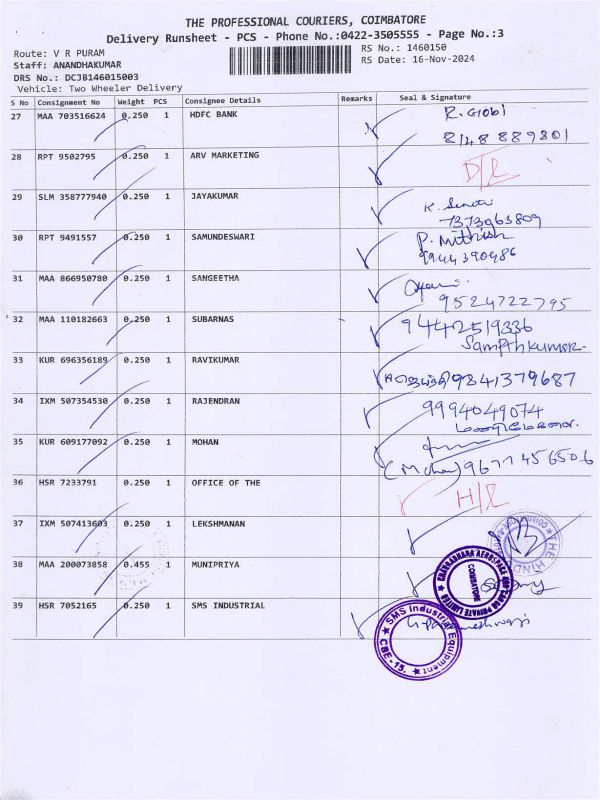 THE PROFESSIONAL COURIERS, COIMBATORE
Delivery Runsheet - PCS - Phone No.:0422-3505555 - Page No.:3
Route: V R PURAM
RS No.: 1460150
Staff: ANANDHAKUMAR
RS Date: 16-Nov-2024
DRS No.: DCJB146015003
Vehicle: Two Wheeler Delivery
S No Consignment No Weight PCS Consignee Details Remarks Seal & Signature
27 MAA 703516624 0.250 1 HDFC BANK R. Giobi
8148889801
28 RPT 9502795 0.250 1 ARV MARKETING D/R
29 SLM 358777940 0.250 1 JAYAKUMAR K.
7373963809
30 RPT 9491557 0.250 1 SAMUNDESWARI P. Mithish
9944390486
31 MAA 866950780 0.250 1 SANGEETHA
9524722795
32 MAA 110182663 0.250 1 SUBARNAS 9442519336
Sampthkumar
33 KUR 696356189 0.250 1 RAVIKUMAR 9841379687
34 IXM 507354530 0.250 1 RAJENDRAN 9994049074
மணிமேகலை
35 KUR 609177092 0.250 1 MOHAN
(Mohan) 9677456506
36 HSR 7233791 0.250 1 OFFICE OF THE H/R
37 IXM 507413603 0.250 1 LEKSHMANAN
THE HINDU
38 MAA 200073858 0.455 1 MUNIPRIYA
AEROSPACE
PRIVATE LIMITED
COIMBATORE
39 HSR 7052165 0.250 1 SMS INDUSTRIAL
SMS Industrial Equipment
CBE-15.